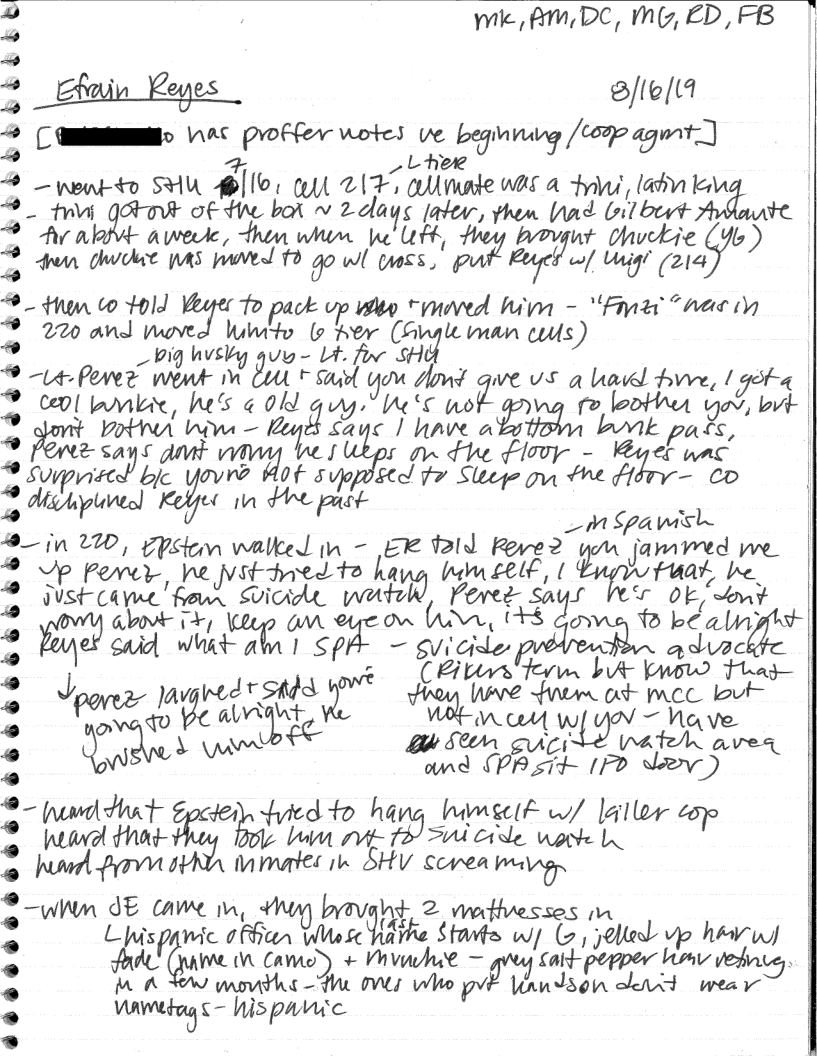 MK, AM, DC, MG, RD, FB
Efrain Reyes 8/16/19
[ o has proffer notes re beginning/coop agmt]
L tier
7
- went to SHU /16, cell 217, cellmate was a trini, latin king
- trini got out of the box ~ 2 days later, then had Gilbert Armante
for about a week, then when he left, they brought chuckie (YG)
then chuckie was moved to go w/ cross, put Reyes w/ Luigi (214)
- then CO told Reyes to pack up + moved him - "Fonzi" was in
220 and moved him to G tier (single man cells)
big husky guy - Lt. for SHU
- Lt. Perez went in cell + said you don't give us a hard time, I got a
cool bunkie, he's a old guy. he's not going to bother you, but
don't bother him - Reyes says I have a bottom bunk pass,
Perez says don't worry he sleeps on the floor - Reyes was
surprised b/c you're not supposed to sleep on the floor - CO
disciplined Reyes in the past
- in Spanish
- in 220, Epstein walked in - ER told Perez you jammed me
up Perez, he just tried to hang himself, I know that, he
just came from suicide watch, Perez says he's ok, don't
worry about it, keep an eye on him, it's going to be alright
Reyes said what am I SPA - suicide prevention advocate
(Rikers term but know that
they have them at MCC but
not in cell w/ you - have
seen suicide watch area
and SPA sit I/F/O door)
↓ Perez laughed + said you're
going to be alright, he
brushed him off
- heard that Epstein tried to hang himself w/ killer cop
heard that they took him out to suicide watch
heard from other inmates in SHU screaming
- when JE came in, they brought 2 mattresses in
last
L hispanic officer whose name starts w/ G, jelled up hair w/
fade (name in camo) + Munchie - grey salt pepper hair retiring
in a few months - the ones who put hands on don't wear
nametags - hispanic